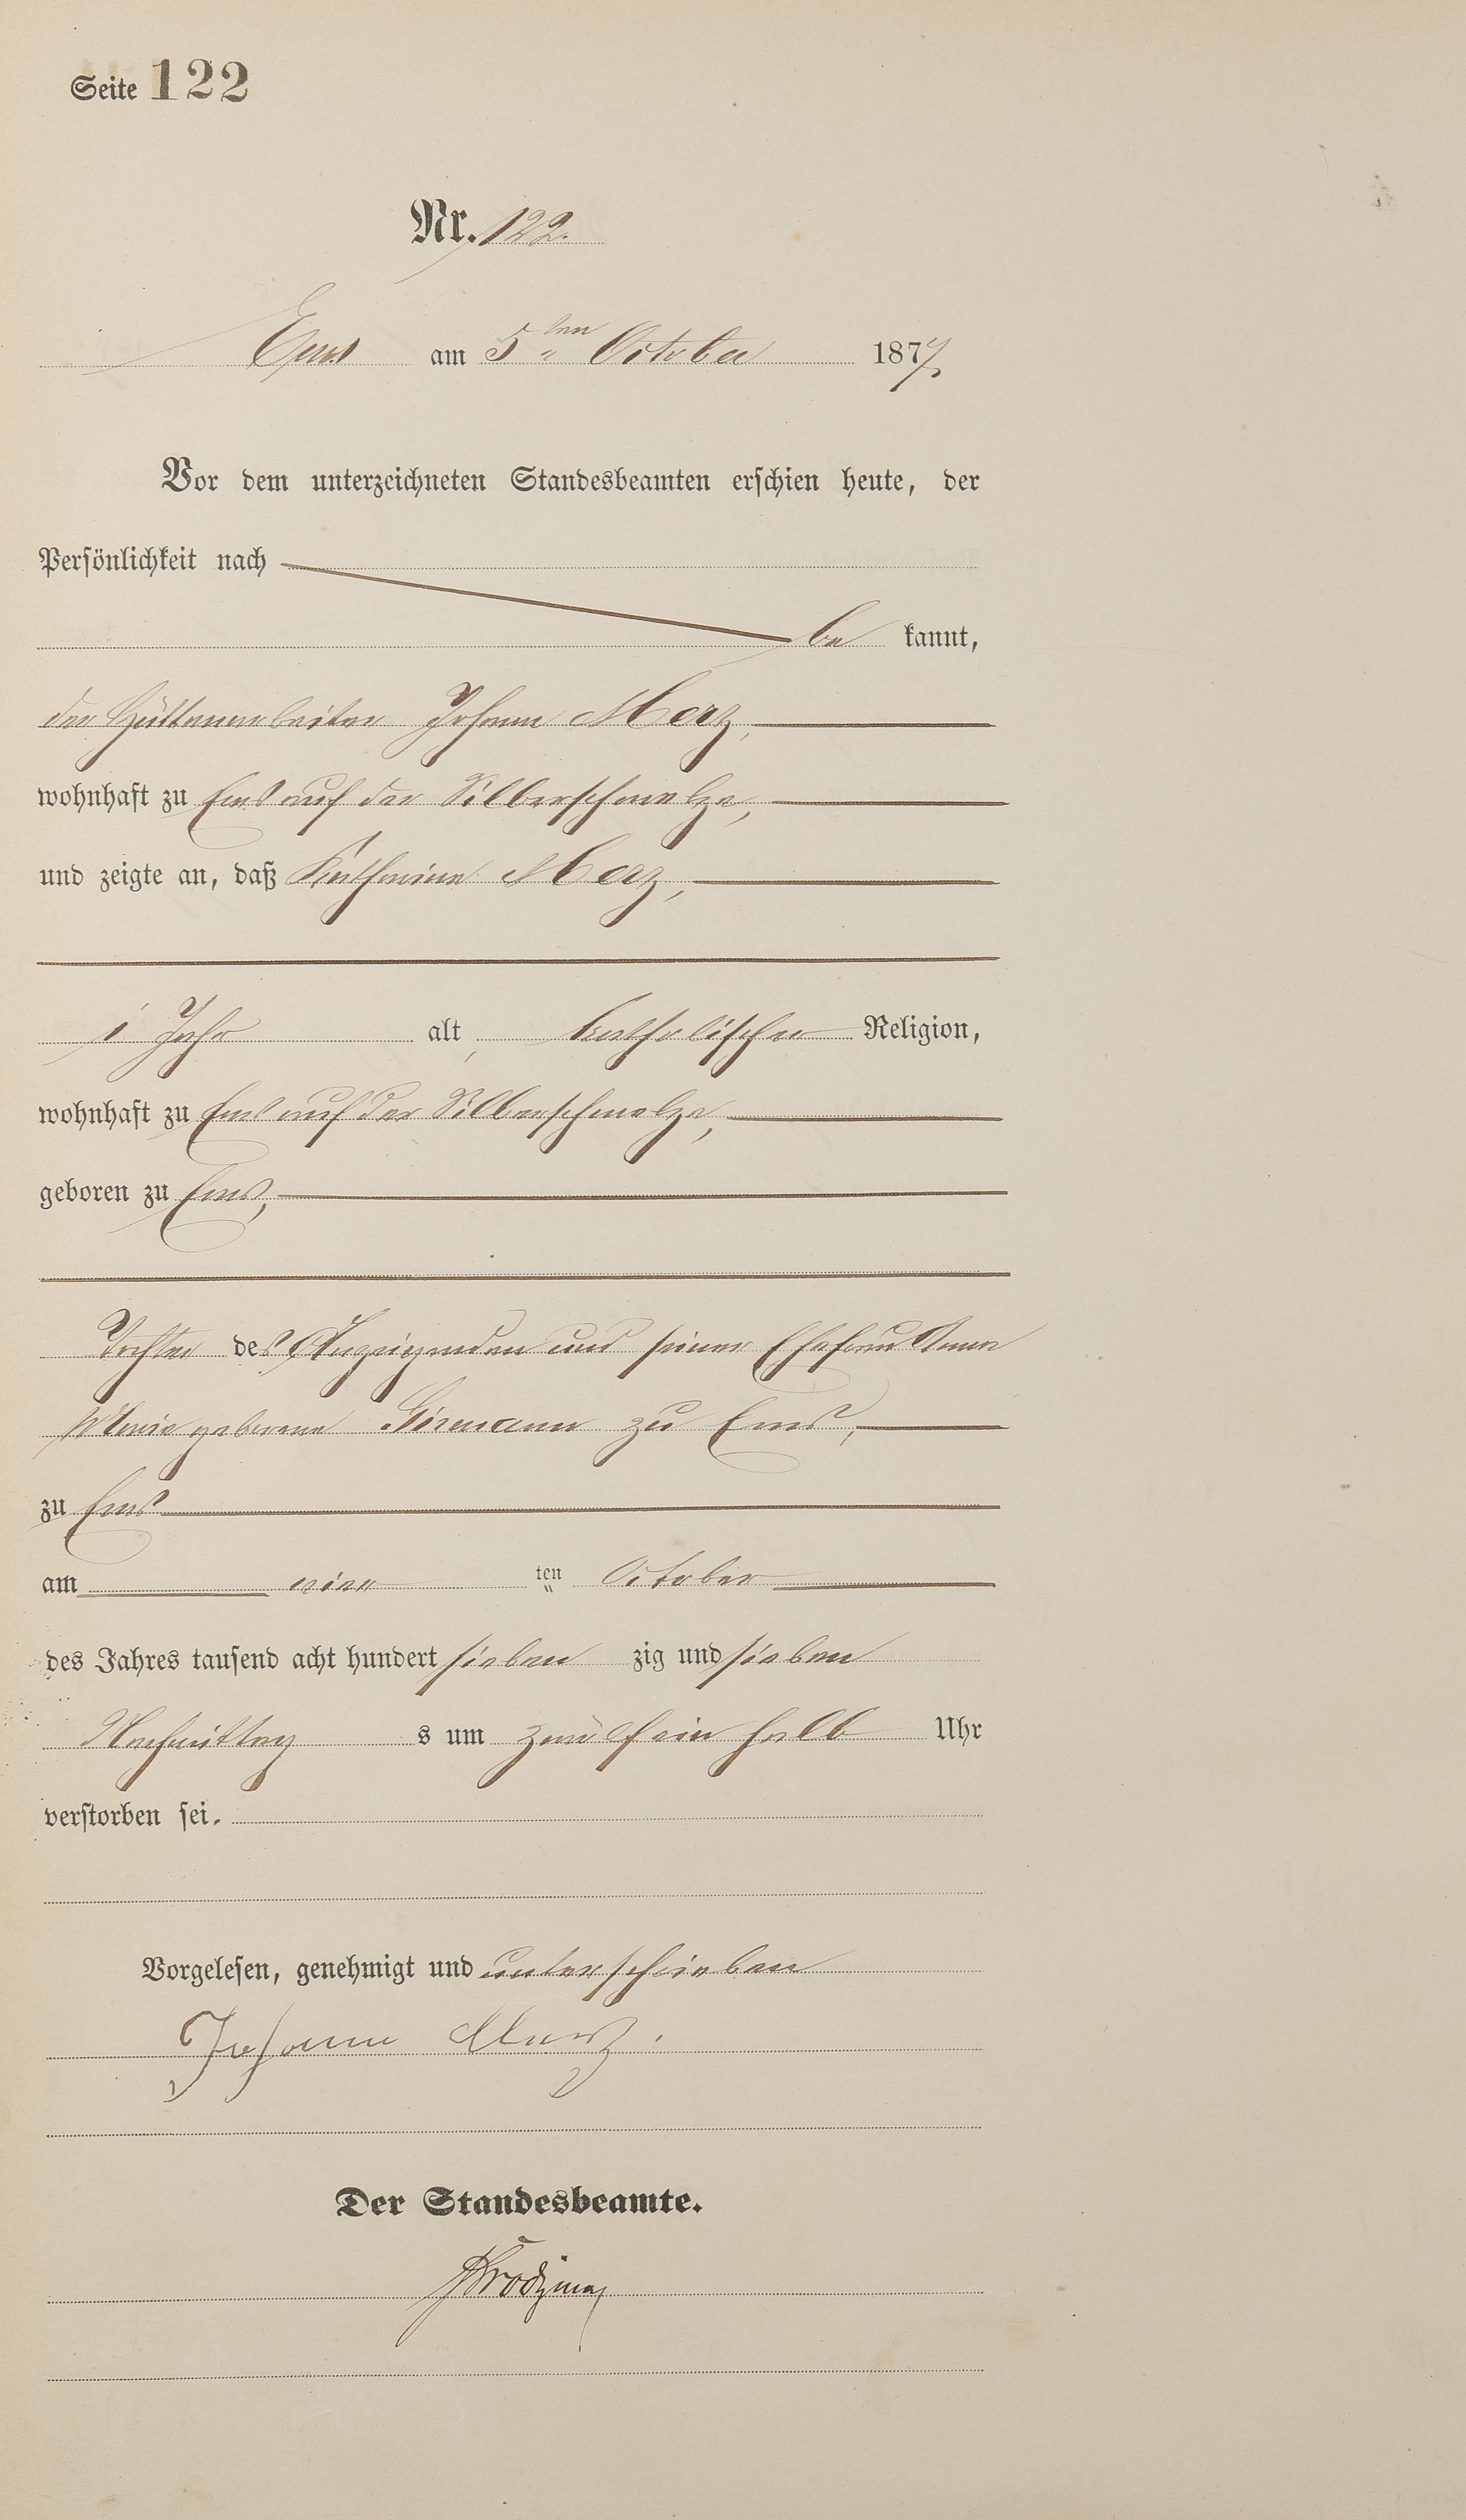 Seite 122
Nr. 122.
Ems am 5ten October 1877.
Vor dem unterzeichneten Standesbeamten erschien heute, der
Persönlichkeit nach
be kannt,
der Hüttenarbeiter Johann Merz,
wohnhaft zu Ems auf der Silberschmelze,
und zeigte an, daß Katharina Merz,
1 Jahr alt, katholischer Religion,
wohnhaft zu Ems auf der Silberschmelze,
geboren zu Ems,
Tochter des Anzeigenden und seiner Ehefrau Anna
Maria geborene zu Ems,
zu Ems
am vier ten October
des Jahres tausend acht hundert sieben zig und sieben
Nachmittag s um zwölf ein halb Uhr
verstorben sei.
Vorgelesen, genehmigt und unterschrieben
Johann Merz.
Der Standesbeamte.